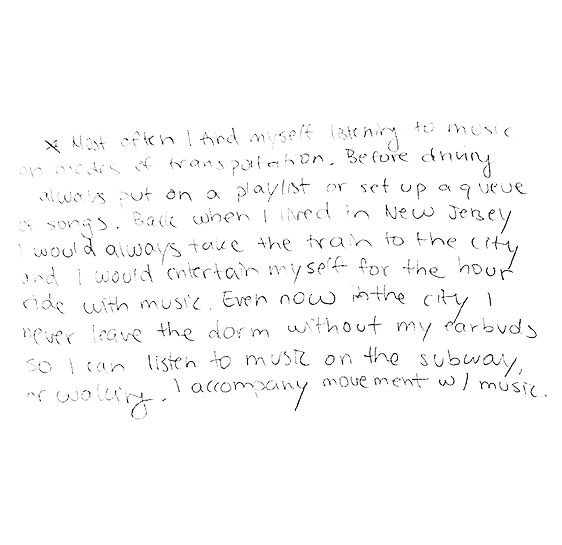 * Most often I find myself listening to music
on modes of transportation. Before driving
always put on a playlist or set up a queue
of songs. Back when I lived in New Jersey
I would always take the train to the city
and I would entertain myself for the hour
ride with music. Even now in the city I
never leave the dorm without my earbuds
so I can listen to music on the subway,
or walking. I accompany movement w/ music.